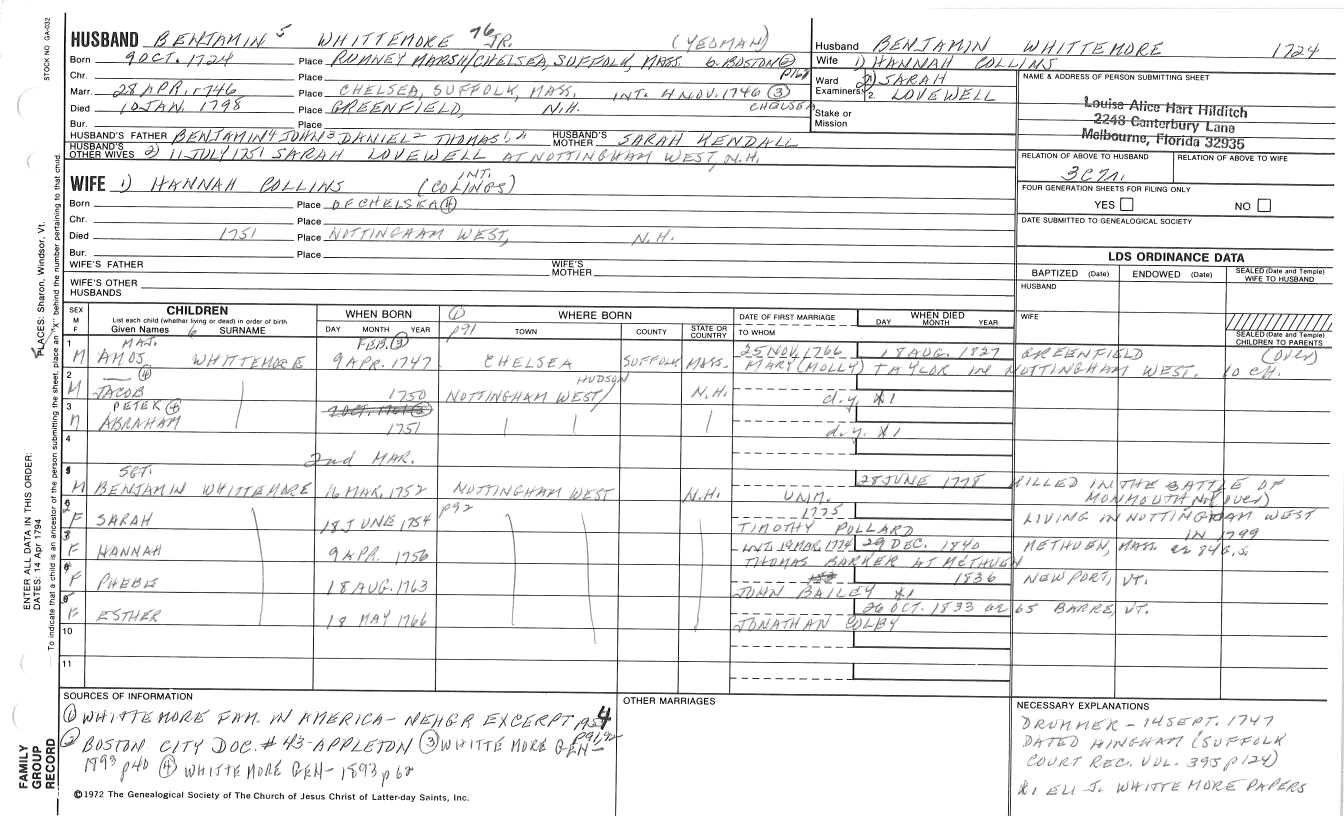 STOCK NO. GA-032
HUSBAND BENJAMIN 5 WHITTEMORE 76 JR. (YEOMAN)
Born 9 OCT. 1724 Place RUMNEY MARSH/CHELSEA, SUFFOLK, MASS. b. BOSTON ②
Chr. Place p168
Marr. 28 APR. 1746 Place CHELSEA, SUFFOLK, MASS. INT. 4 NOV. 1746 ③
Died 10 JAN. 1798 Place GREENFIELD, N.H. CHELSEA
Bur. Place
HUSBAND'S FATHER BENJAMIN 4 JOHN 3 DANIEL 2 THOMAS 1, HUSBAND'S MOTHER SARAH KENDALL
HUSBAND'S OTHER WIVES 2) 11 JULY 1751 SARAH LOVEWELL AT NOTTINGHAM WEST, N.H.
Husband BENJAMIN WHITTEMORE 1724
Wife 1) HANNAH COLLINS
Ward Examiners: 1. 2) SARAH
2. LOVEWELL
Stake or Mission
NAME & ADDRESS OF PERSON SUBMITTING SHEET
Louise Alice Hart Hilditch
2248 Canterbury Lane
Melbourne, Florida 32935
RELATION OF ABOVE TO HUSBAND RELATION OF ABOVE TO WIFE
3C7r.
FOUR GENERATION SHEETS FOR FILING ONLY
YES NO
DATE SUBMITTED TO GENEALOGICAL SOCIETY
INT.
WIFE 1) HANNAH COLLINS (COLINGS)
Born Place OF CHELSEA ④
Chr. Place
Died 1751 Place NOTTINGHAM WEST, N.H.
Bur. Place
WIFE'S FATHER WIFE'S MOTHER
WIFE'S OTHER HUSBANDS
LDS ORDINANCE DATA
BAPTIZED (Date) ENDOWED (Date) SEALED (Date and Temple) WIFE TO HUSBAND
HUSBAND
WIFE
SEALED (Date and Temple) CHILDREN TO PARENTS
SEX M F
CHILDREN
List each child (whether living or dead) in order of birth
Given Names 6 SURNAME
WHEN BORN
DAY MONTH YEAR
① WHERE BORN
p91 TOWN COUNTY STATE OR COUNTRY
DATE OF FIRST MARRIAGE
TO WHOM
WHEN DIED
DAY MONTH YEAR
1 MAJ. FEB. ③ 25 NOV. 1766 18 AUG. 1827 GREENFIELD (OVER)
M AMOS WHITTEMORE 9 APR. 1747 CHELSEA SUFFOLK MASS. MARY (MOLLY) TAYLOR IN NOTTINGHAM WEST. 10 CH.
2 ④ HUDSON
M JACOB 1750 NOTTINGHAM WEST/ N.H. d.y. *1
3 PETER ④
M ABRAHAM 1751 d.y. *1
4
2nd MAR.
5 1 SGT. 28 JUNE 1778 KILLED IN THE BATTLE OF
M BENJAMIN WHITTEMORE 16 MAR. 1752 NOTTINGHAM WEST N.H. UNM. MONMOUTH NJ (OVER)
6 2 p92 1775 LIVING IN NOTTINGHAM WEST
F SARAH 18 JUNE 1754 TIMOTHY POLLARD IN 1799
3 INT. 19 MAR. 1774 29 DEC. 1840 METHUEN, MASS. ae 84 G.S
F HANNAH 9 APR. 1756 THOMAS BARKER AT METHUEN
1836 NEWPORT, VT.
F PHEBE 18 AUG. 1763 JOHN BAILEY *1
26 OCT. 1833 ae 65 BARRE, VT.
F ESTHER 18 MAY 1766 JONATHAN COLBY
10
11
SOURCES OF INFORMATION
① WHITTEMORE FAM. IN AMERICA - NEHGR EXCERPT 1954
p91,92
② BOSTON CITY DOC. #43-APPLETON ③ WHITTEMORE GEN-
1893 p40 ④ WHITTEMORE GEN- 1893 p62
OTHER MARRIAGES
NECESSARY EXPLANATIONS
DRUMMER - 14 SEPT. 1747
DATED HINGHAM (SUFFOLK
COURT REC. VOL. 395 p124)
*1 ELI J. WHITTEMORE PAPERS
©1972 The Genealogical Society of The Church of Jesus Christ of Latter-day Saints, Inc.
FAMILY GROUP RECORD
ENTER ALL DATA IN THIS ORDER:
DATES: 14 Apr 1794
PLACES: Sharon, Windsor, Vt.
To indicate that a child is an ancestor of the person submitting the sheet, place an "X" behind the number pertaining to that child.